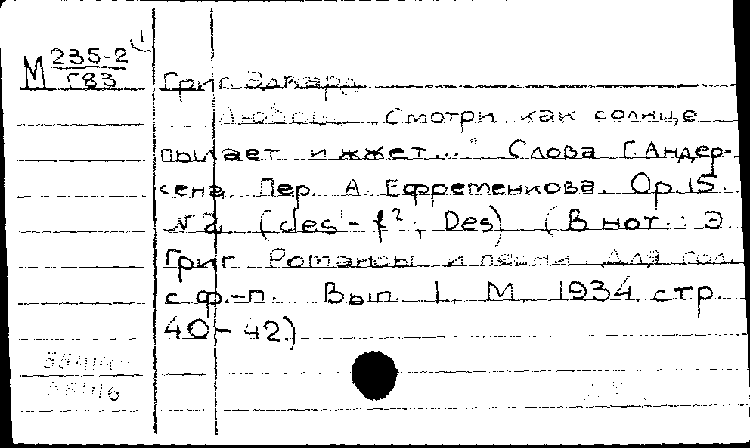 М 235-2
Г83
Григ Эдвард
Любовь. Смотри как солнце
пылает и жжет..." Слова Г. Андер-
сена. Пер. А. Ефременкова. Op. 15.
№ 2. (des¹ - f²; Des) (В нот.: Э.
Григ Романсы и песни для гол.
с ф.-п. Вып. 1. М. 1934. стр.
40 - 42.)